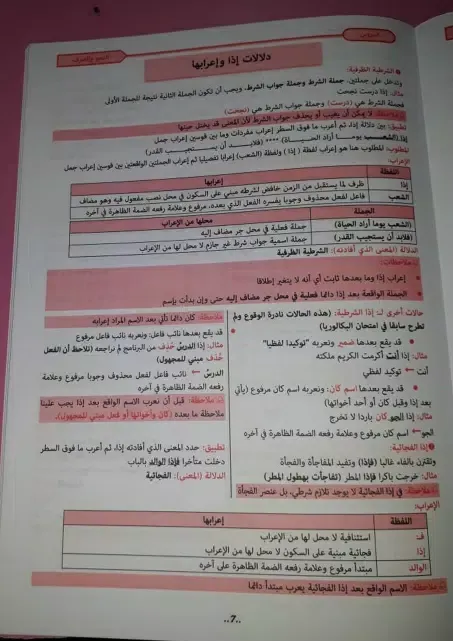 الدروس
النحو والصرف
دلالات إذا وإعرابها
الشرطية الظرفية:
وتدخل على جملتين، جملة الشرط وجملة جواب الشرط، ويجب أن تكون الجملة الثانية نتيجة للجملة الأولى
مثال: إذا درست نجحت
فجملة الشرط هي (درست) وجملة جواب الشرط هي (نجحت)
ملاحظة: لا يمكن أن يغيب أو يحذف جواب الشرط لأن المعنى قد يختل حينها
تطبيق: بين دلالة إذا، ثم أعرب ما فوق السطر إعراب مفردات وما بين قوسين إعراب جمل
إذا (الشعب يوما أراد الحياة) **** (فلابد أن يستجيب القدر)
المطلوب: المطلوب هنا هو إعراب لفظة ( إذا ) ولفظة (الشعب) إعرابا تفصيليا ثم إعراب الجملتين الواقعتين بين قوسين إعراب جمل
الإعراب:
اللفظة إعرابها
إذا ظرف لما يستقبل من الزمن خافض لشرطه مبني على السكون في محل نصب مفعول فيه وهو مضاف
الشعب فاعل لفعل محذوف وجوبا يفسره الفعل الذي بعده، مرفوع وعلامة رفعه الضمة الظاهرة في آخره
الجملة محلها من الإعراب
(الشعب يوما أراد الحياة) جملة فعلية في محل جر مضاف إليه
(فلابد أن يستجيب القدر) جملة اسمية جواب شرط غير جازم لا محل لها من الإعراب
الدلالة (المعنى الذي أفادته): الشرطية الظرفية
ملاحظات:
إعراب إذا وما بعدها ثابت أي أنه لا يتغير إطلاقا
الجملة الواقعة بعد إذا دائما فعلية في محل جر مضاف إليه حتى وإن بدأت بإسم
حالات أخرى لـ: إذا الشرطية: (هذه الحالات نادرة الوقوع ولم
تطرح سابقا في امتحان البكالوريا)
قد يقع بعدها ضمير ونعربه "توكيدا لفظيا"
مثال: إذا أنت أكرمت الكريم ملكته
أنت ← توكيد لفظي
قد يقع بعدها اسم كان: ونعربه اسم كان مرفوع (يأتي
بعد إذا وقبل كان أو أحد أخواتها)
مثال: إذا الجو كان باردا لا تخرج
الجو← اسم كان مرفوع وعلامة رفعه الضمة الظاهرة في آخره
ملاحظة: كان دائما تأتي بعد الاسم المراد إعرابه
قد يقع بعدها نائب فاعل: ونعربه نائب فاعل مرفوع
مثال: إذا الدرس حُذف من البرنامج لم نراجعه (نلاحظ أن الفعل
حُذف مبني للمجهول)
الدرس ← نائب فاعل لفعل محذوف وجوبا مرفوع وعلامة
رفعه الضمة الظاهرة في آخره
ملاحظة: قبل أن نعرب الاسم الواقع بعد إذا يجب علينا
ملاحظة ما بعده (كان وأخواتها أو فعل مبني للمجهول).
إذا الفجائية:
وتقترن بالفاء غالبا (فإذا) وتفيد المفاجأة والفجأة
مثال: خرجت باكرا فإذا المطر (تفاجأت بهطول المطر)
ملاحظة: في إذا الفجائية لا يوجد تلازم شرطي، بل عنصر الفجأة
تطبيق: حدد المعنى الذي أفادته إذا، ثم أعرب ما فوق السطر
دخلت متأخرا فإذا الوالد بالباب
الدلالة (المعنى): الفجائية
الإعراب:
اللفظة إعرابها
فـ استئنافية لا محل لها من الإعراب
إذا فجائية مبنية على السكون لا محل لها من الإعراب
الوالد مبتدأ مرفوع وعلامة رفعه الضمة الظاهرة على آخره
ملاحظة: الاسم الواقع بعد إذا الفجائية يعرب مبتدأ دائما
..7..